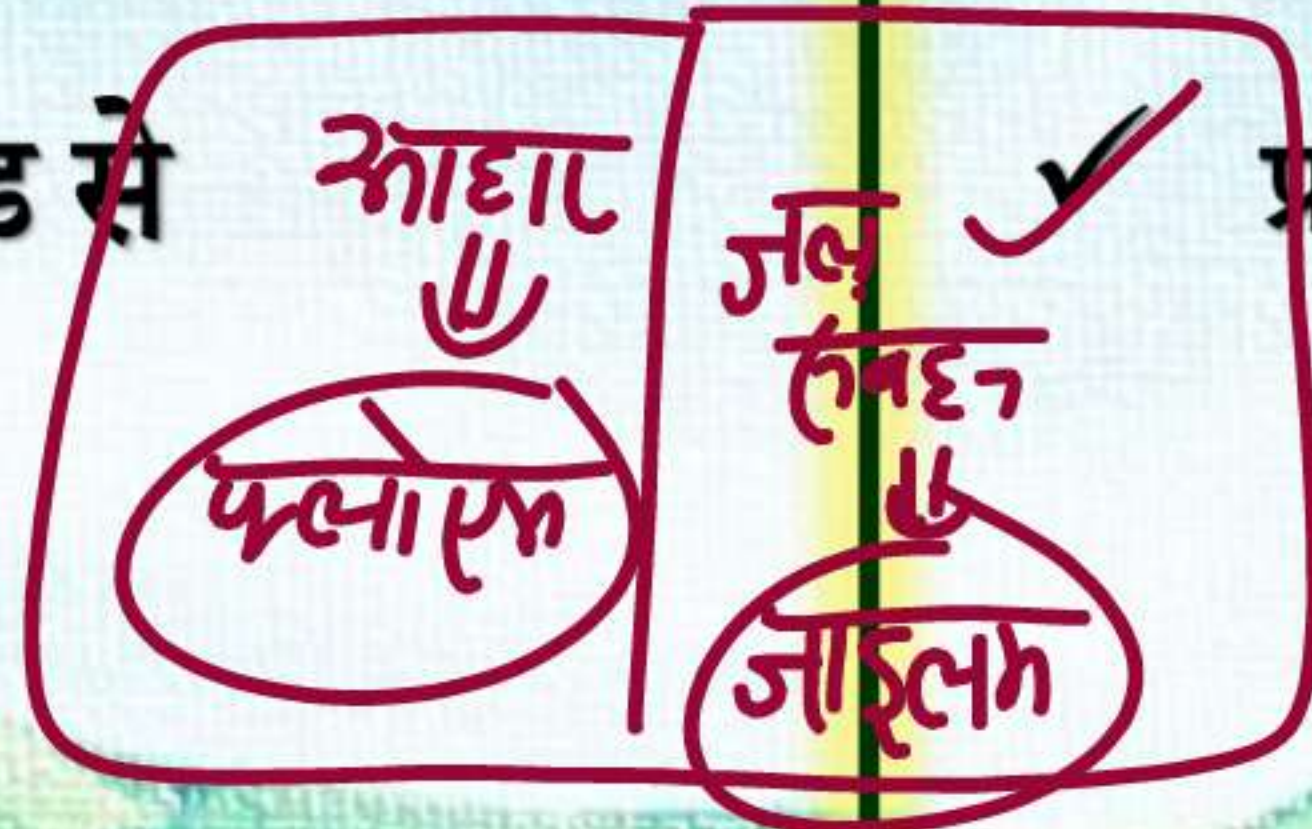 से
आहार
फ्लोएम
जल
संवहन
जाइलम